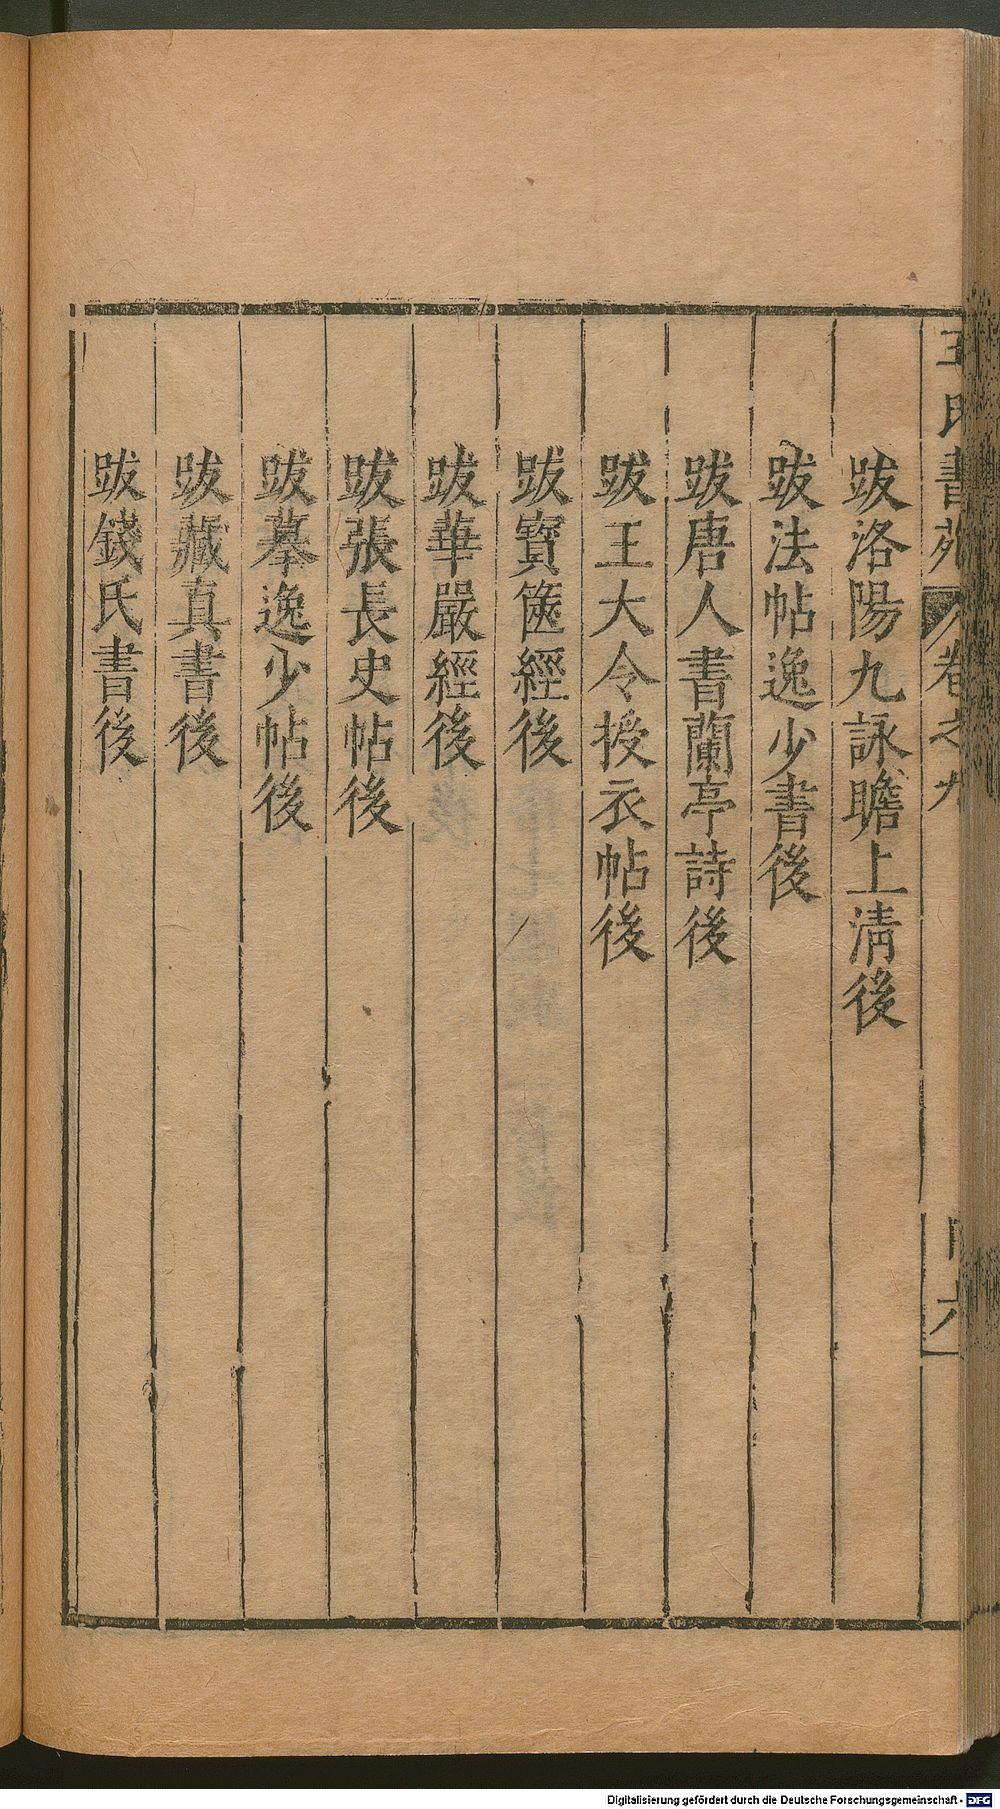 王氏書苑 卷之九
跋洛陽九詠瞻上清後
跋法帖逸少書後
跋唐人書蘭亭詩後
跋王大令授衣帖後
跋寶篋經後
跋華嚴經後
跋張長史帖後
跋摹逸少帖後
跋藏真書後
跋錢氏書後
Digitalisierung gefördert durch die Deutsche Forschungsgemeinschaft - DFG